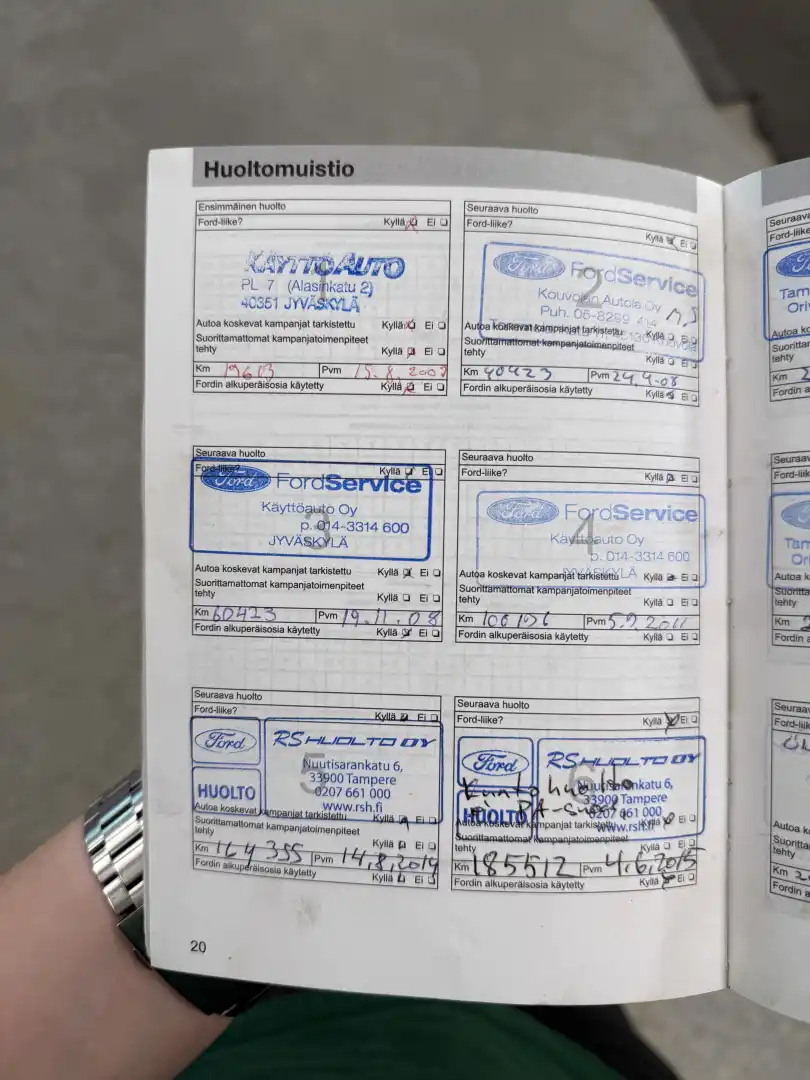 Huoltomuistio
Ensimmäinen huolto
Ford-liike? Kyllä Ei
1
KÄYTTÖAUTO
PL 7 (Alasinkatu 2)
40351 JYVÄSKYLÄ
Autoa koskevat kampanjat tarkistettu Kyllä Ei
Suorittamattomat kampanjatoimenpiteet
tehty Kyllä Ei
Km 19603 Pvm 15.8.2007
Fordin alkuperäisosia käytetty Kyllä Ei
Seuraava huolto
Ford-liike? Kyllä Ei
2
Ford FordService
Kouvolan Autola Oy
Puh. 05-8299 414
Autoa koskevat kampanjat tarkistettu Kyllä Ei
Suorittamattomat kampanjatoimenpiteet
tehty Kyllä Ei
Km 40423 Pvm 24.4.08
Fordin alkuperäisosia käytetty Kyllä Ei
Seuraava huolto
Ford-liike? Kyllä Ei
3
Ford FordService
Käyttöauto Oy
p. 014-3314 600
JYVÄSKYLÄ
Autoa koskevat kampanjat tarkistettu Kyllä Ei
Suorittamattomat kampanjatoimenpiteet
tehty Kyllä Ei
Km 60423 Pvm 19.11.08
Fordin alkuperäisosia käytetty Kyllä Ei
Seuraava huolto
Ford-liike? Kyllä Ei
4
Ford FordService
Käyttöauto Oy
p. 014-3314 600
JYVÄSKYLÄ
Autoa koskevat kampanjat tarkistettu Kyllä Ei
Suorittamattomat kampanjatoimenpiteet
tehty Kyllä Ei
Km Pvm 2011
Fordin alkuperäisosia käytetty Kyllä Ei
Seuraava huolto
Ford-liike? Kyllä Ei
5
Ford RS HUOLTO OY
Nuutisarankatu 6,
33900 Tampere
HUOLTO 0207 661 000
www.rsh.fi
Autoa koskevat kampanjat tarkistettu Kyllä Ei
Suorittamattomat kampanjatoimenpiteet
tehty Kyllä Ei
Km 164355 Pvm 14.8.2014
Fordin alkuperäisosia käytetty Kyllä Ei
Seuraava huolto
Ford-liike? Kyllä Ei
6
Ford RS HUOLTO OY
Nuutisarankatu 6,
Kuntohuolto
33900 Tampere
HUOLTO 0207 661 000
www.rsh.fi
Autoa koskevat kampanjat tarkistettu Kyllä Ei
Suorittamattomat kampanjatoimenpiteet
tehty Kyllä Ei
Km 185512 Pvm 4.6.2015
Fordin alkuperäisosia käytetty Kyllä Ei
20